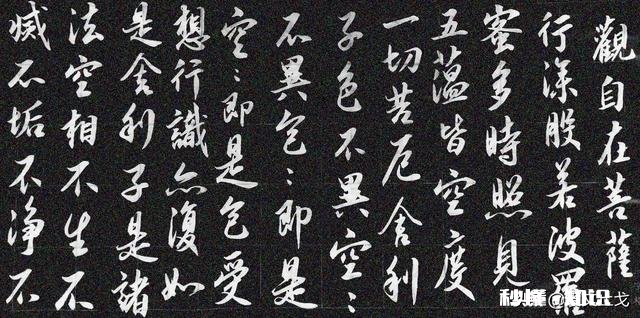 觀自在菩薩
行深般若波羅
蜜多時照見
五蘊皆空度
一切苦厄舍利
子色不異空〻
不異色〻即是
空〻即是色受
想行識亦復如
是舍利子是諸
法空相不生不
滅不垢不淨不
秒懂